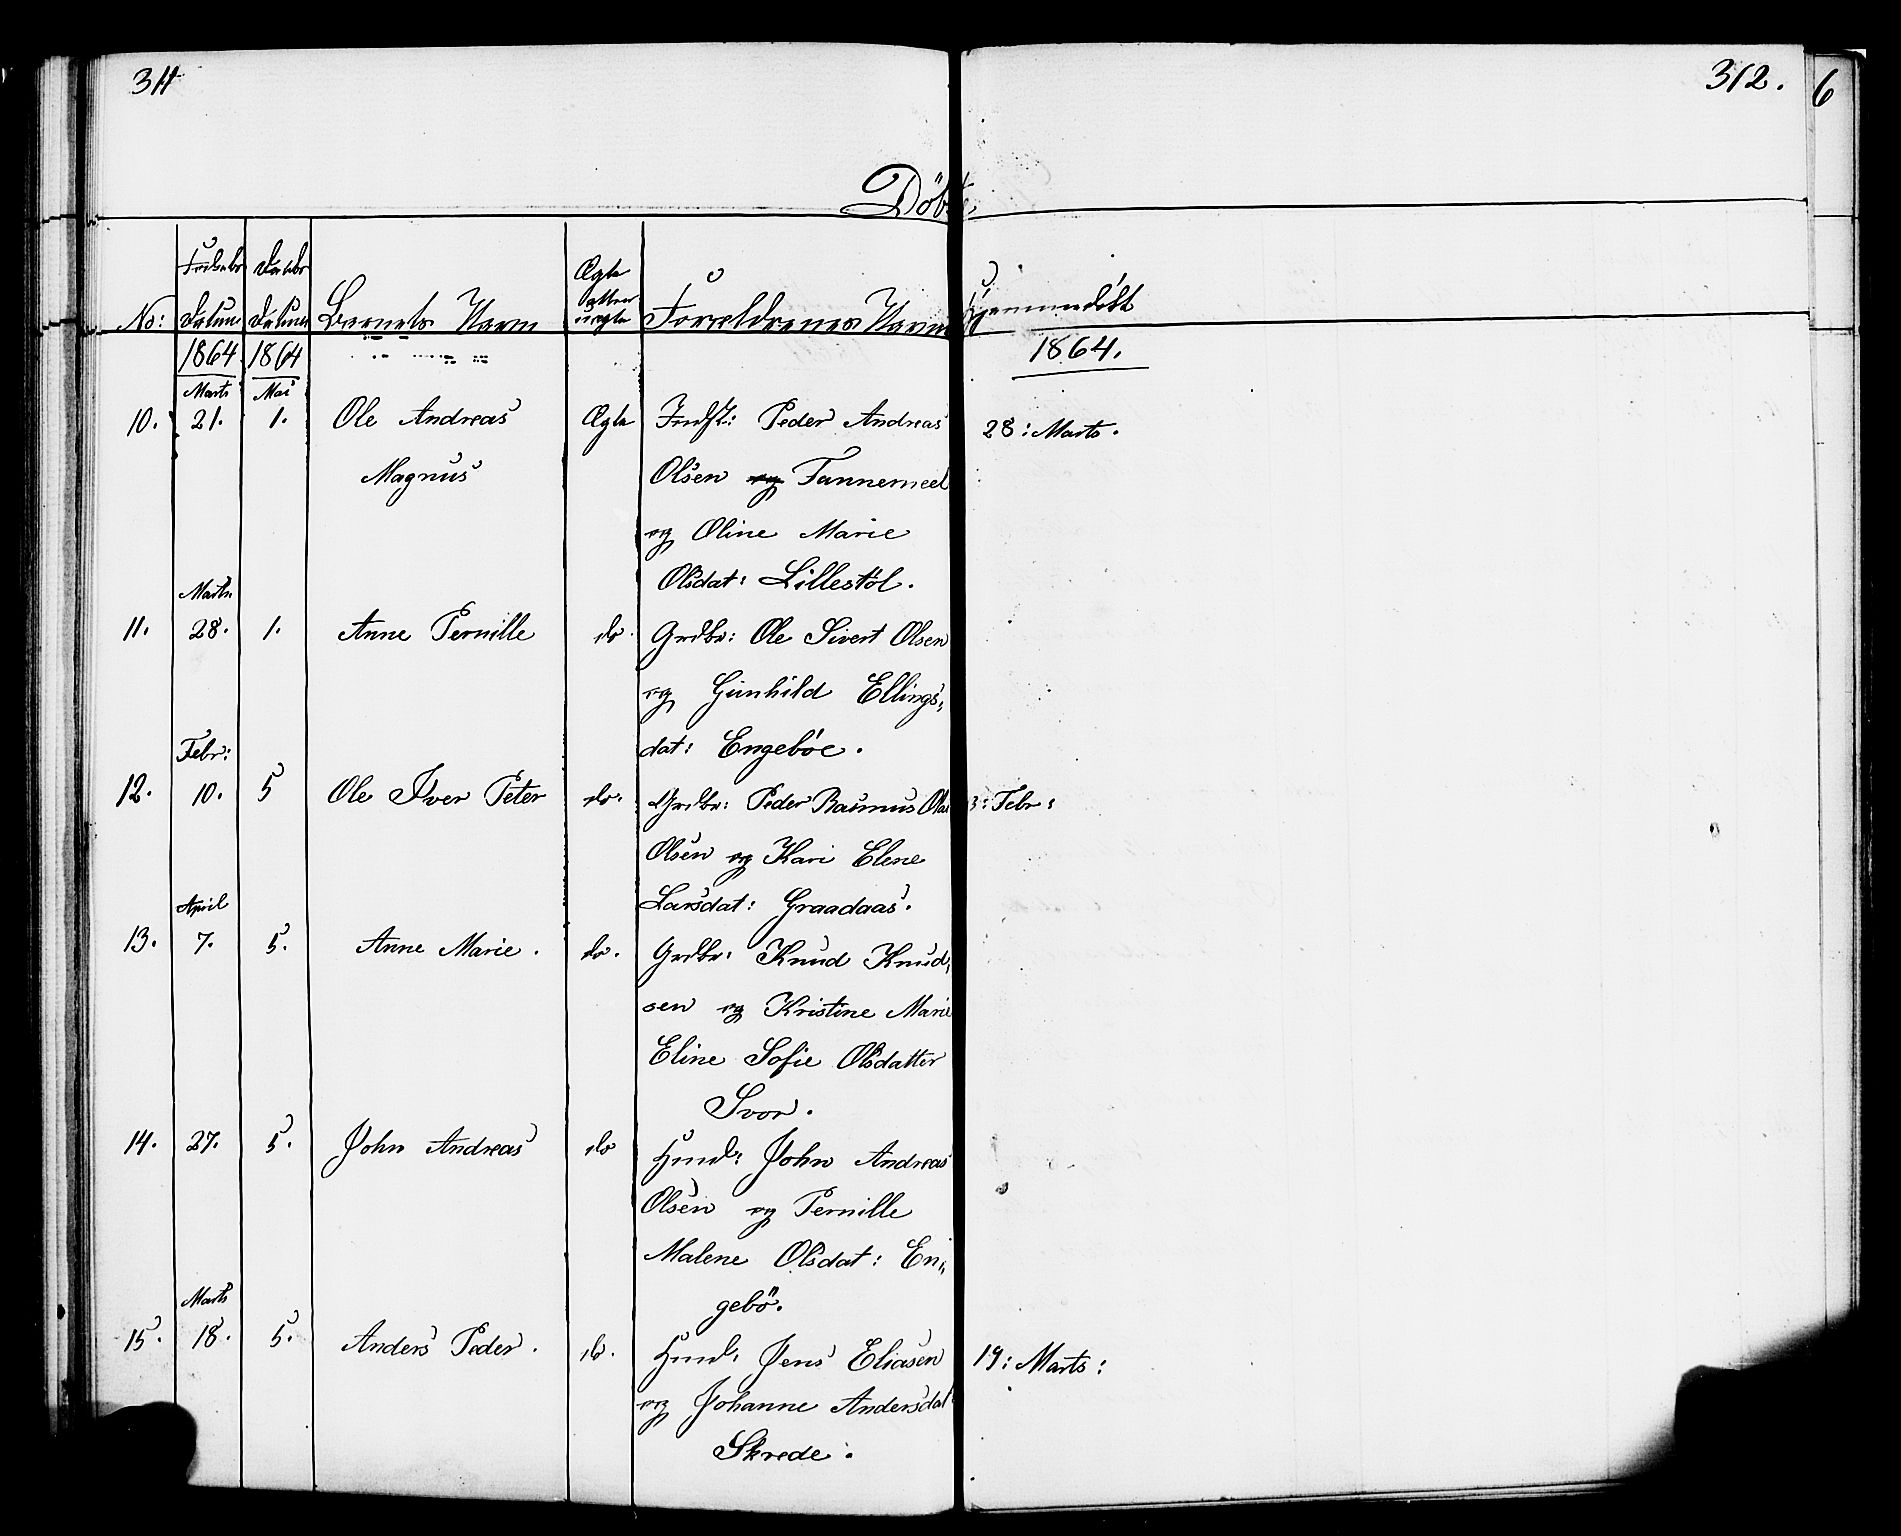 311
312.
6
Döbte,
No: Fødsels Datum Daabs Datum Barnets Navn Ægte eller uægte Forældrenes Navn Hjemmedöbt
1864 1864 1864.
Marts Mai
10. 21. 1. Ole Andreas Ægte Indst: Peder Andreas 28: Marts.
Magnus Olsen og Tannemeel
og Oline Marie
Olsdat: Lillestöl.
Marts
11. 28. 1. Anne Pernille do. Grdbr: Ole Sivert Olsen
og Gunhild Ellings,
dat: Engebóe.
Febr:
12. 10. 5 Ole Iver Peter do. Grdbr: Peder Rasmus 3: Febr:
Olsen og Kari Elene
Larsdat: Graadaas.
April
13. 7. 5. Anne Marie. do. Grdbr: Knud Knud,
sen og Kristine Marie
Eline Sofie Olsdatter
Svor.
14. 27. 5. John Andreas do Hmd: John Andreas
Olsen og Pernille
Malene Olsdat: En,,
gebö.
Marts
15. 18. 5. Anders Peder. do. Hmd: Jens Eliasen 19: Marts:
og Johanne Andersdat
Skrede.